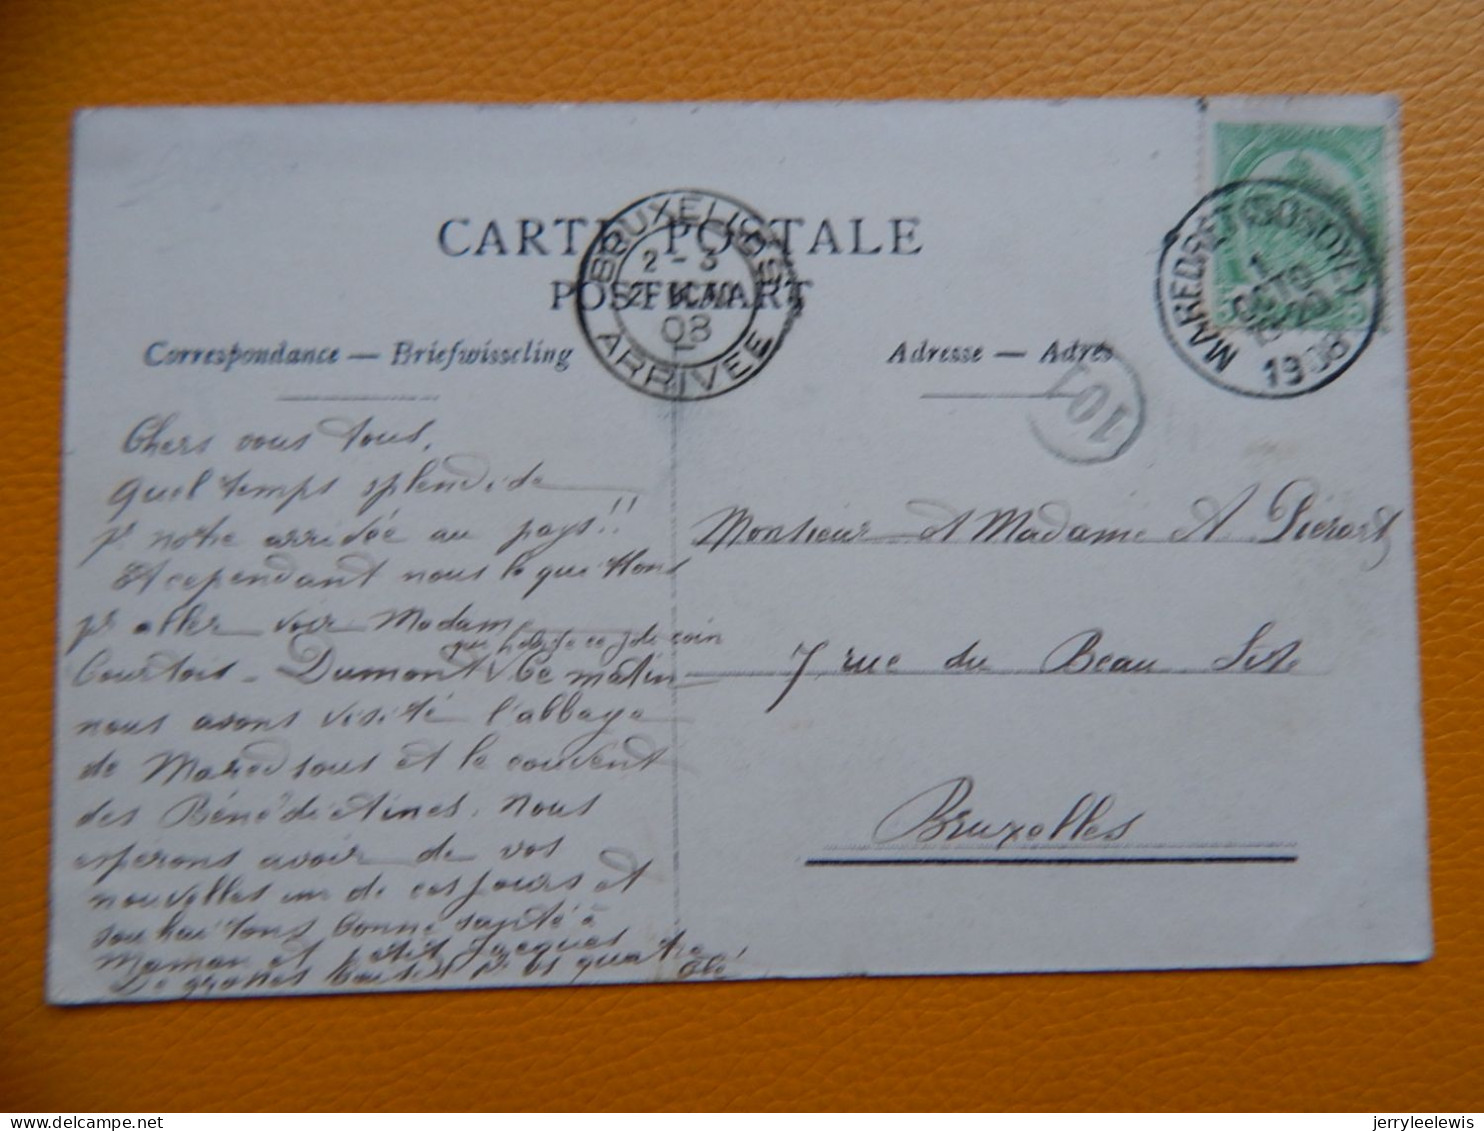 CARTE POSTALE
POSTKAART
Correspondance — Briefwisseling
Adresse — Adres
BRUXELLES
2 - 3
08
ARRIVEE
MAREDRET (SOSOYE)
1
OCTO
1908
101
Chers vous tous,
Quel temps splendide
pr notre arrivée au pays!!
Et cependant nous le quittons
pr aller voir Madame
Courtois - Dumont Ce matin
nous avons visité l'abbaye
de Maredsous et le couvent
des Bénédictines. Nous
espérons avoir de vos
nouvelles un de ces jours et
souhaitons bonne santé à
Maman et petit Jacques
De grosses baises de vs quatre
Monsieur et Madame A. Piérart
7 rue du Beau Site
Bruxelles
jerryleelewis